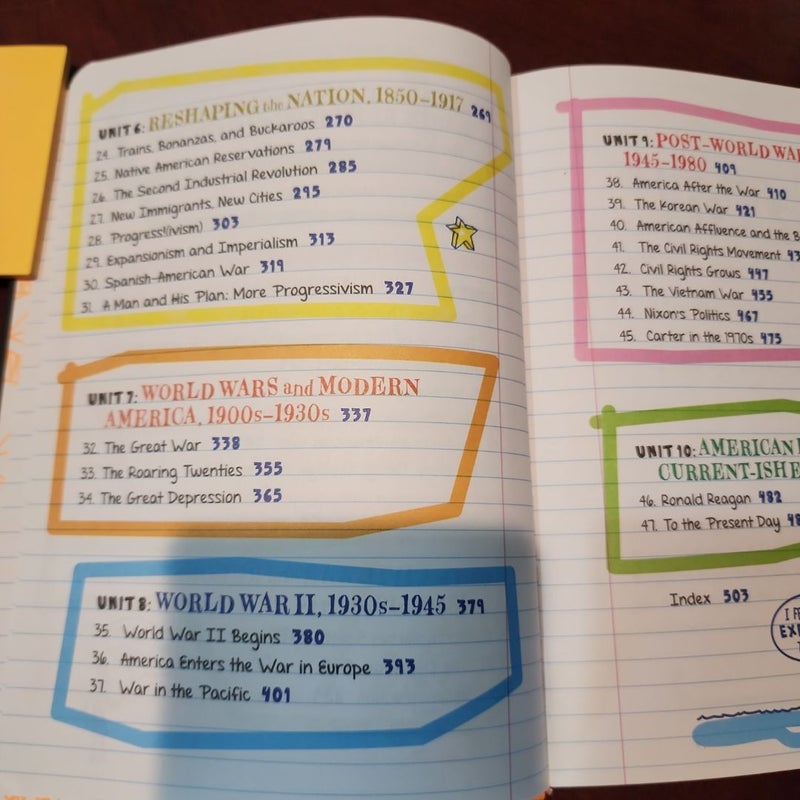 UNIT 6: RESHAPING the NATION, 1850–1917 269
24. Trains, Bonanzas, and Buckaroos 270
25. Native American Reservations 279
26. The Second Industrial Revolution 285
27. New Immigrants, New Cities 295
28. Progress!(ivism) 303
29. Expansionism and Imperialism 313
30. Spanish-American War 319
31. A Man and His Plan: More Progressivism 327
UNIT 7: WORLD WARS and MODERN
AMERICA, 1900s–1930s 337
32. The Great War 338
33. The Roaring Twenties 355
34. The Great Depression 365
UNIT 8: WORLD WAR II, 1930s–1945 379
35. World War II Begins 380
36. America Enters the War in Europe 393
37. War in the Pacific 401
UNIT 9: POST-WORLD WAR
1945-1980 409
38. America After the War 410
39. The Korean War 421
40. American Affluence and the
41. The Civil Rights Movement
42. Civil Rights Grows 447
43. The Vietnam War 455
44. Nixon's Politics 467
45. Carter in the 1970s 475
UNIT 10: AMERICAN
CURRENT-ISH
46. Ronald Reagan 482
47. To the Present Day
Index 503
I